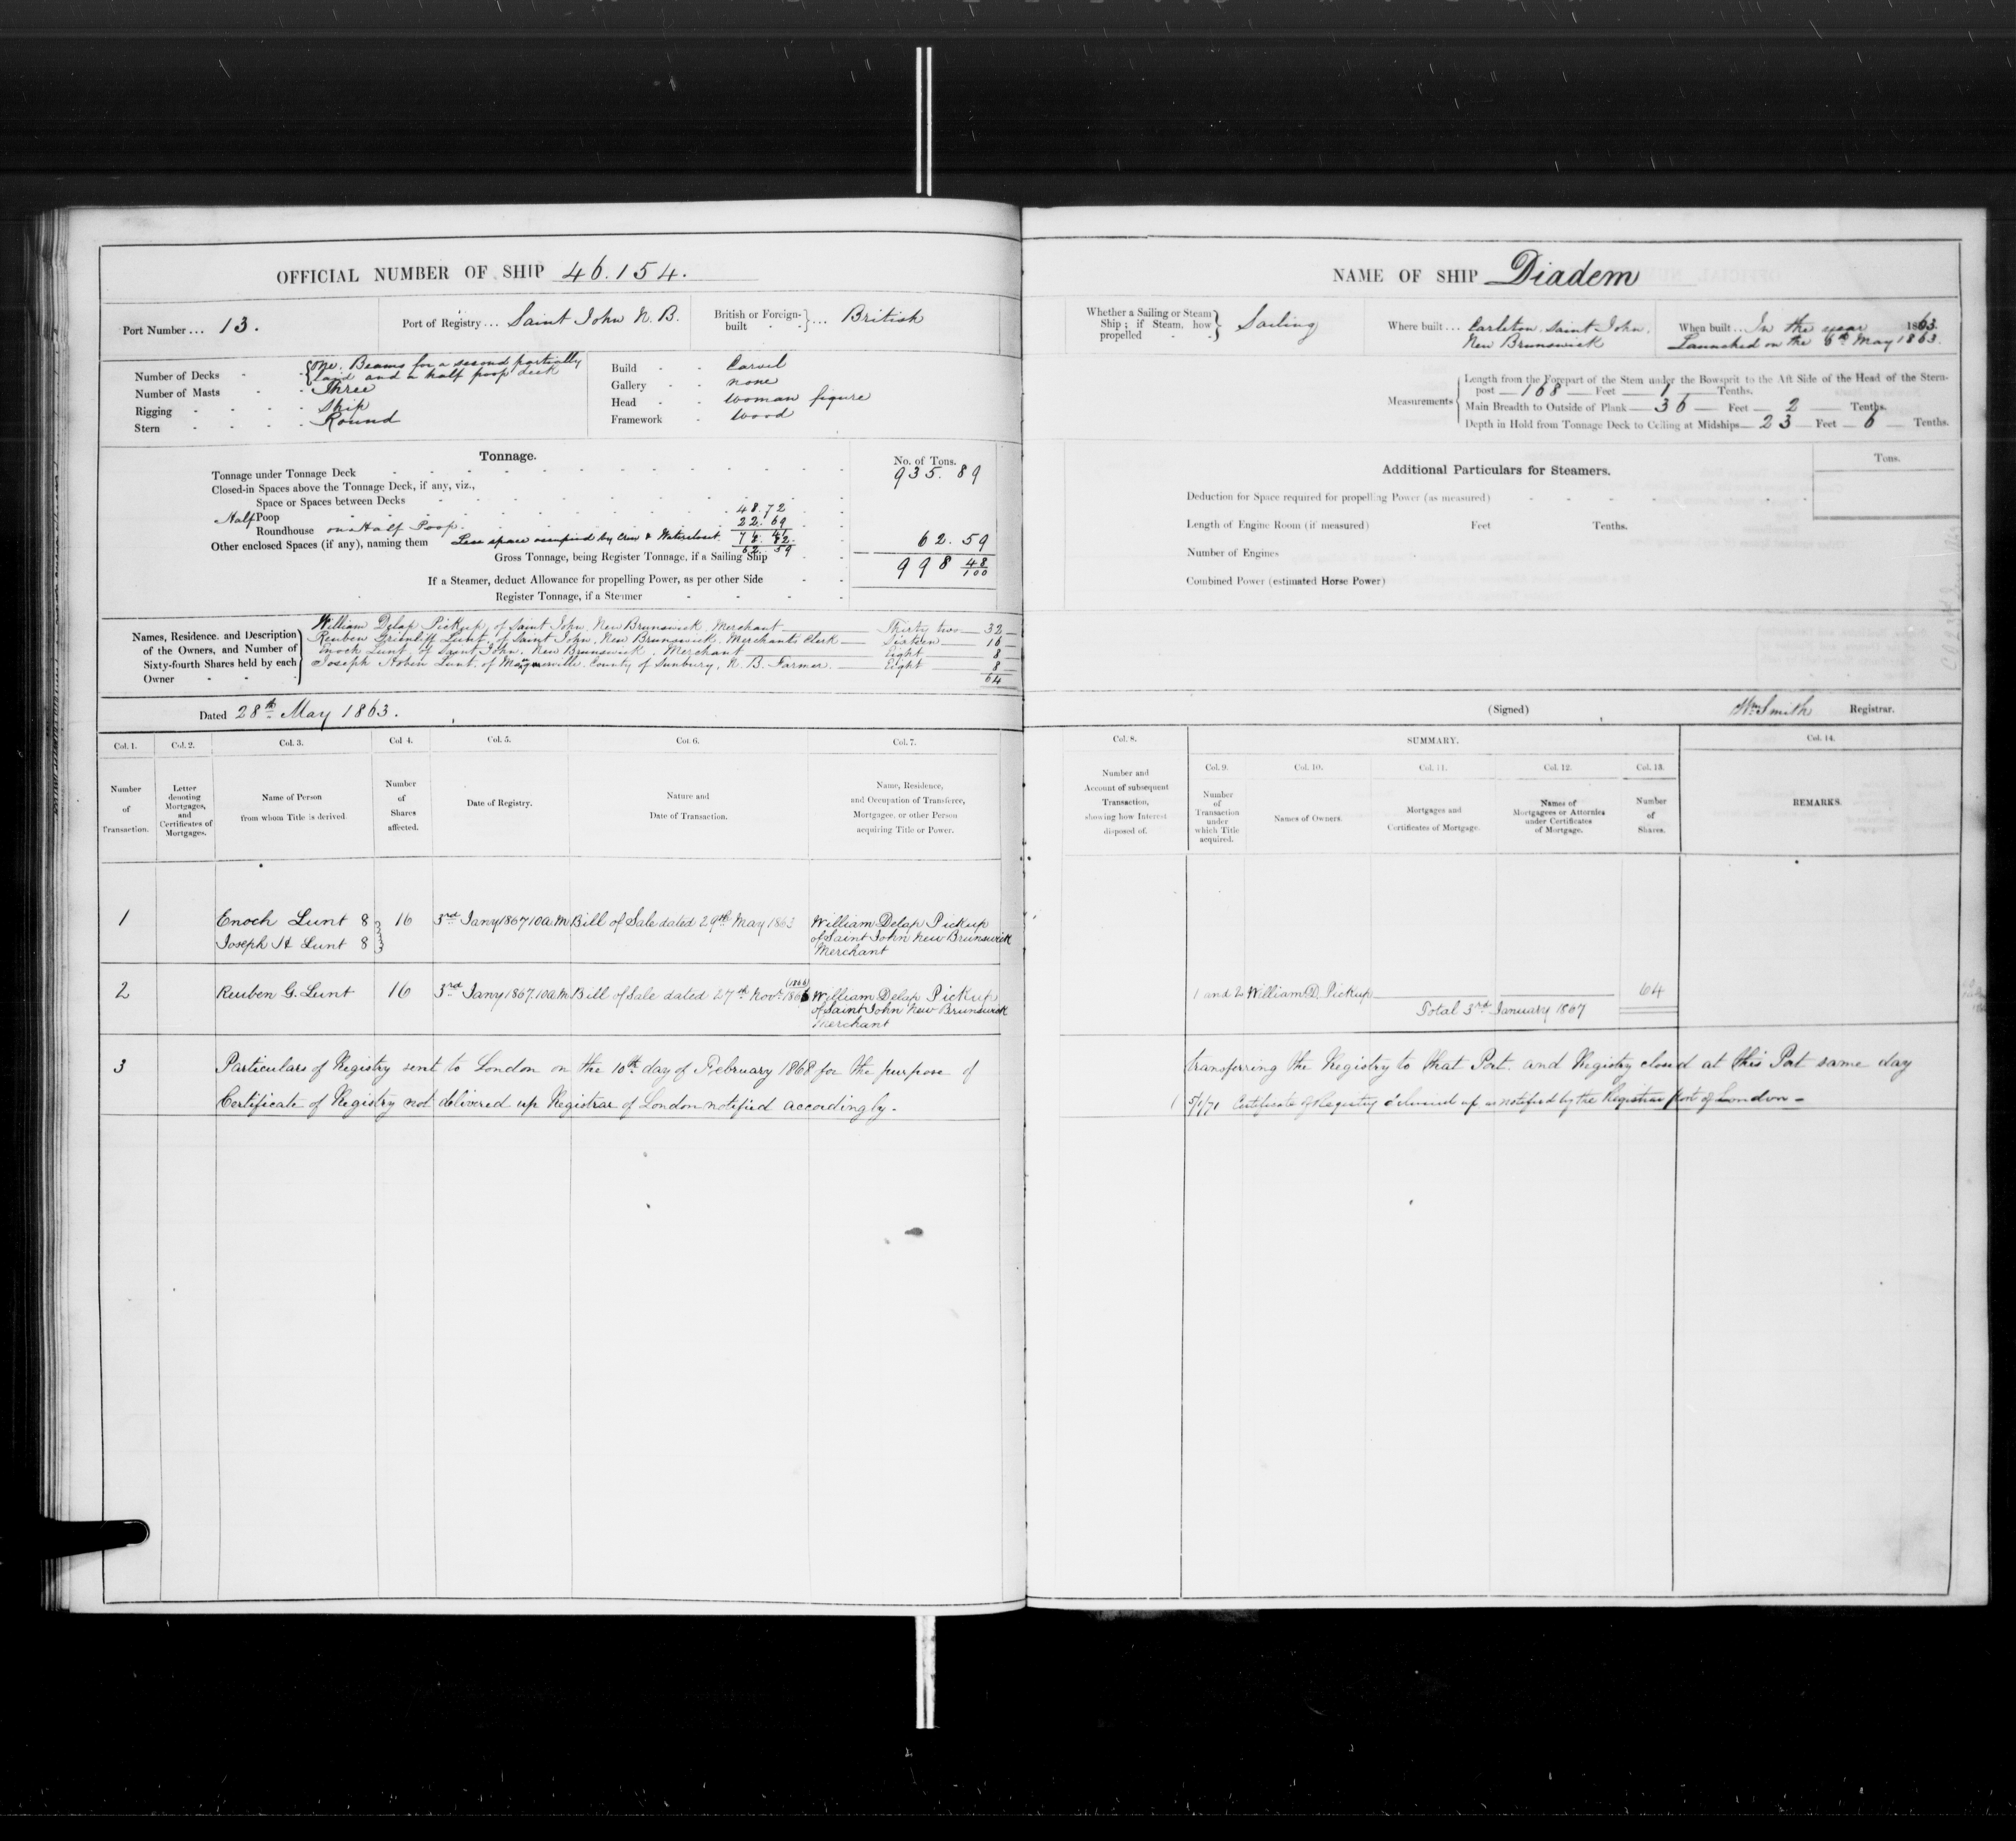 OFFICIAL NUMBER OF SHIP 46.154.
Port Number ... 13.
Port of Registry ... Saint John N. B.
British or Foreign-built } ... British
Number of Decks - { One. Beams for a second partially
laid and a half poop deck
Number of Masts - Three
Rigging - Ship
Stern - Round
Build - Carvel
Gallery - none
Head - Woman figure
Framework - Wood
Tonnage.
No. of Tons.
Tonnage under Tonnage Deck 935.89
Closed-in Spaces above the Tonnage Deck, if any, viz.,
Space or Spaces between Decks
Half Poop 48.72
Roundhouse on Half Poop. 22.69
Other enclosed Spaces (if any), naming them Less space occupied by Crew & Watercloset.
62.59 62.59
Gross Tonnage, being Register Tonnage, if a Sailing Ship 998 48/100
If a Steamer, deduct Allowance for propelling Power, as per other Side
Register Tonnage, if a Steamer
Names, Residence and Description of the Owners, and Number of Sixty-fourth Shares held by each Owner
William Delap Pickup, of Saint John, New Brunswick, Merchant Thirty two 32
Reuben Lunt, of Saint John, New Brunswick, Merchants Clerk Sixteen 16
Enoch Lunt, of Saint John, New Brunswick, Merchant Eight 8
Joseph Lunt, of Maugerville, County of Sunbury, N. B. Farmer. Eight 8
64
Dated 28th May 1863.
Col. 1. Col. 2. Col. 3. Col 4. Col. 5. Col. 6. Col. 7.
Number of Transaction.
Letter denoting Mortgages, and Certificates of Mortgages.
Name of Person from whom Title is derived.
Number of Shares affected.
Date of Registry.
Nature and Date of Transaction.
Name, Residence, and Occupation of Transferee, Mortgagee, or other Person acquiring Title or Power.
1 Enoch Lunt 8 } 16 3rd Jany 1867 10 a.M Bill of Sale dated 29th May 1863 William Delap Pickup
Joseph H Lunt 8 } of Saint John New Brunswick
Merchant
(1866)
2 Reuben G. Lunt 16 3rd Jany 1867. 10 a.M Bill of Sale dated 27th Novr 1866 William Delap Pickup
of Saint John New Brunswick
Merchant
3 Particulars of Registry sent to London on the 10th day of February 1868 for the purpose of
Certificate of Registry not delivered up Registrar of London notified accordingly.
NAME OF SHIP Diadem
Whether a Sailing or Steam Ship; if Steam, how propelled } Sailing
Where built ... Carleton, Saint John,
New Brunswick
When built ... In the year 1863.
Launched on the 6th May 1863.
Measurements
Length from the Forepart of the Stem under the Bowsprit to the Aft Side of the Head of the Stern-
post 168 Feet 1 Tenths.
Main Breadth to Outside of Plank 36 Feet 2 Tenths.
Depth in Hold from Tonnage Deck to Ceiling at Midships 23 Feet 6 Tenths.
Additional Particulars for Steamers.
Tons.
Deduction for Space required for propelling Power (as measured)
Length of Engine Room (if measured) Feet Tenths.
Number of Engines
Combined Power (estimated Horse Power)
(Signed) Wm Smith Registrar.
Col. 8. SUMMARY. Col. 14.
Col. 9. Col. 10. Col. 11. Col. 12. Col. 13.
Number and Account of subsequent Transaction, showing how Interest disposed of.
Number of Transaction under which Title acquired.
Names of Owners.
Mortgages and Certificates of Mortgage.
Names of Mortgagees or Attornies under Certificates of Mortgage.
Number of Shares.
REMARKS.
1 and 2 William D. Pickup 64
Total 3rd January 1867
transferring the Registry to that Port. and Registry closed at this Port same day
5/1/71 Certificate of Registry delivered up as notified by the Registrar Port of London